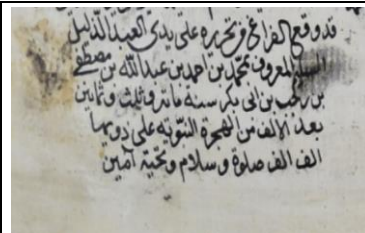 قد وقع الفراغ و تحريره على يدى العبد الذليل
السيد المعروف محمد بن احمد بن عبد الله بن مصطفى
بن رجب بن ابى بكر سنة مائة وثلث وثمانين
بعد الالف من الهجرة النبوية على دويها
الف الف صلوة وسلام وتحية آمين